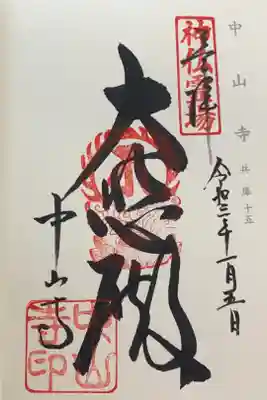 中山寺 兵庫十五
神仏霊場
令和三年一月五日
大悲殿
中山寺
中山寺印